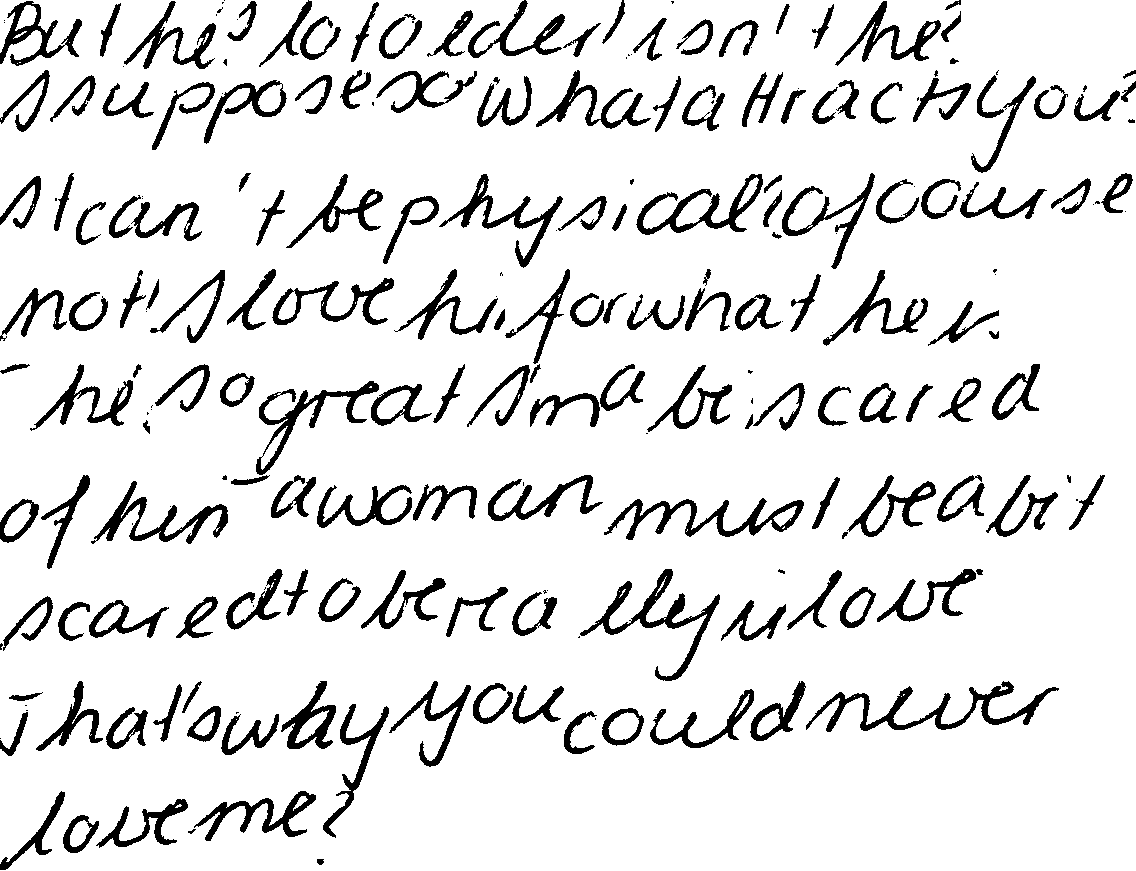 But he's lot older, isn't he?
I suppose so. What attracts you?
It can't be physical. " Of course
not! I love him for what he is.
- he's so great I'm a bit scared
of him - a woman must be a bit
scared to be really in love.
That's why you could never
love me?